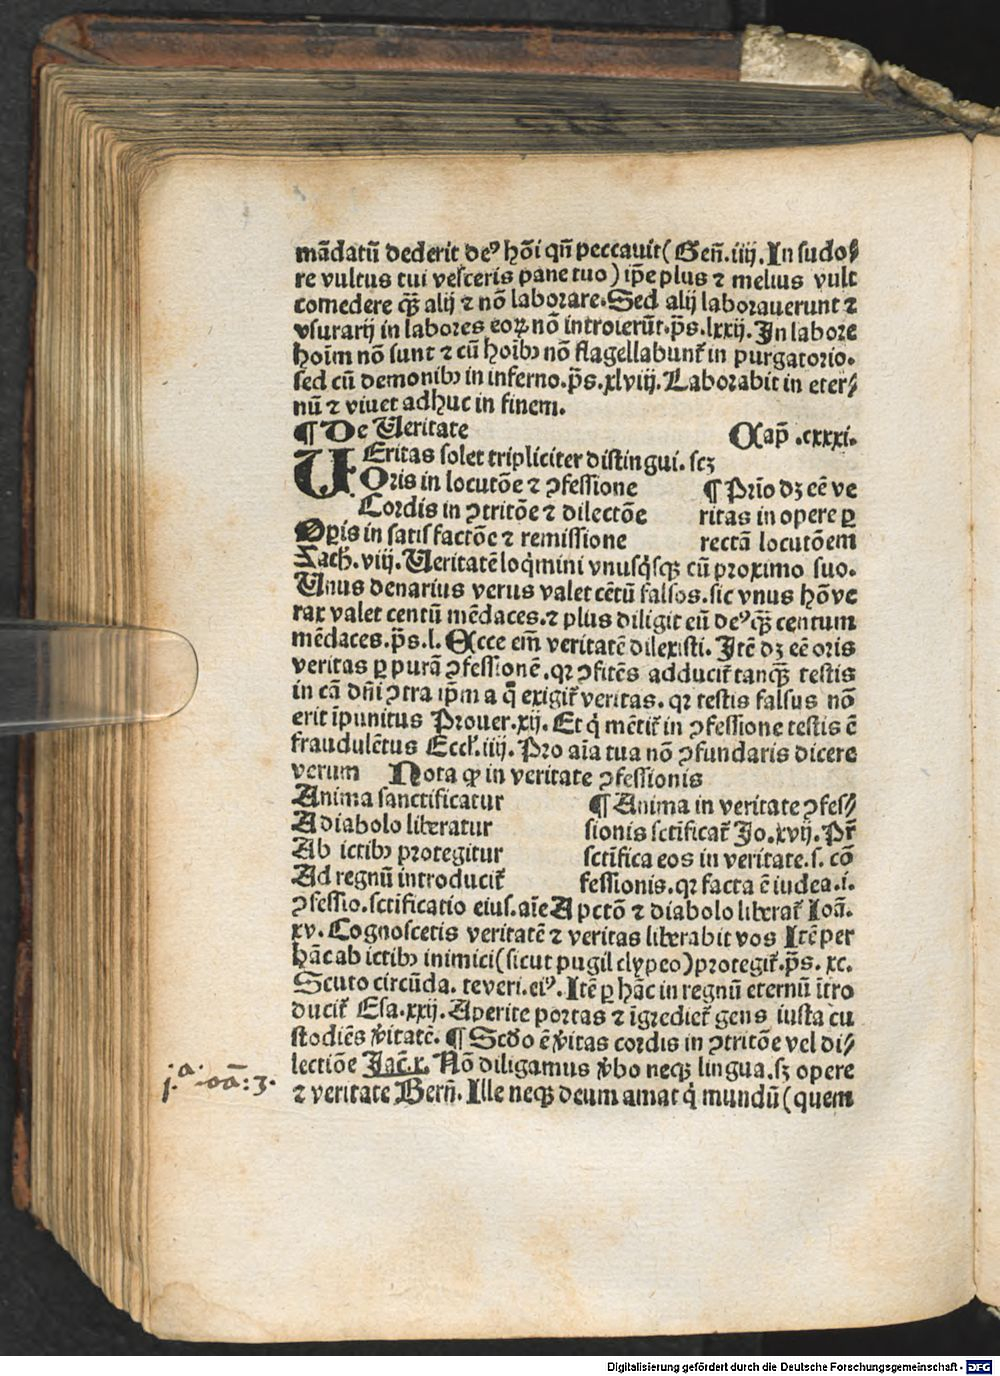 mādatū dederit deꝰ hōi qn̄ peccauit (Gen̄. iiij. In sudo⸗
re vultus tui vesceris pane tuo) ip̄e plus ⁊ melius vult
comedere qꝫ̄ alij ⁊ nō laborare. Sed alij laborauerunt ⁊
vsurarij in labores eoꝝ nō introierūt. p̄s. lxxij. In labore
hoīm nō sunt ⁊ cū hoībꝫ nō flagellabunt᷑ in purgatorio.
sed cū demonibꝫ in inferno. p̄s. xlviij. Laborabit in eter⸗
nū ⁊ viuet adhuc in finem.
¶ De Veritate Cap̄ .cxxxi.
VEritas solet tripliciter distingui. scꝫ
Oris in locutōe ⁊ ꝯfessione ¶ Prīo dꝫ eē ve
Cordis in ꝯtritōe ⁊ dilectōe ritas in opere ꝑ
Oꝑis in satisfactōe ⁊ remissione rectā locutōem
Zach. viij. Veritatē loq̇mini vnusq̇sqꝫ cū proximo suo.
Unus denarius verus valet cētū falsos. sic vnus hō ve
rax valet centū mēdaces. ⁊ plus diligit eū deꝰ qꝫ̄ centum
mēdaces. p̄s. l. Ecce em̄ veritatē dilexisti. Itē dꝫ eē oris
veritas ꝑ purā ꝯfessionē. qꝛ ꝯfitēs adducit᷑ tanqꝫ̄ testis
in cā dn̄i ꝯtra ip̄m a q̄ exigit᷑ veritas. qꝛ testis falsus nō
erit īpunitus Prouer. xij. Et q̇ mētit᷑ in ꝯfessione testis ē
fraudulētus Eccl᷑. iiij. Pro aīa tua nō ꝯfundaris dicere
verum Nota ꝙ in veritate ꝯfessionis
Anima sanctificatur ¶ Anima in veritate ꝯfes⸗
A diabolo liberatur sionis sctīficat᷑ Jo. xvij. Pr̄
Ab ictibꝫ protegitur sctīfica eos in veritate. s. cō
Ad regnū introducit᷑ fessionis. qꝛ facta ē iudea .i.
ꝯfessio. sctīficatio eius. aīe A pctō ⁊ diabolo liberat᷑ Ioā.
xv. Cognoscetis veritatē ⁊ veritas liberabit vos Itē per
hāc ab ictibꝫ inimici (sicut pugil clypeo) protegit᷑. p̄s. xc.
Scuto circūda. te veri. eiꝰ. Itē ꝑ hāc in regnū eternū ītro
ducit᷑ Esa. xxij. Aperite portas ⁊ īgrediet᷑ gens iusta cu
stodiēs v̓itatē. ¶ Scdo ē v̓itas cordis in ꝯtritōe vel di⸗
lectiōe Jac̄. x. Nō diligamus v̓bo neqꝫ lingua. sꝫ opere
j.ᵃ· ·oā: 3.
⁊ veritate Bern̄. Ille neqꝫ deum amat q̇ mundū (quem
Digitalisierung gefördert durch die Deutsche Forschungsgemeinschaft - DFG